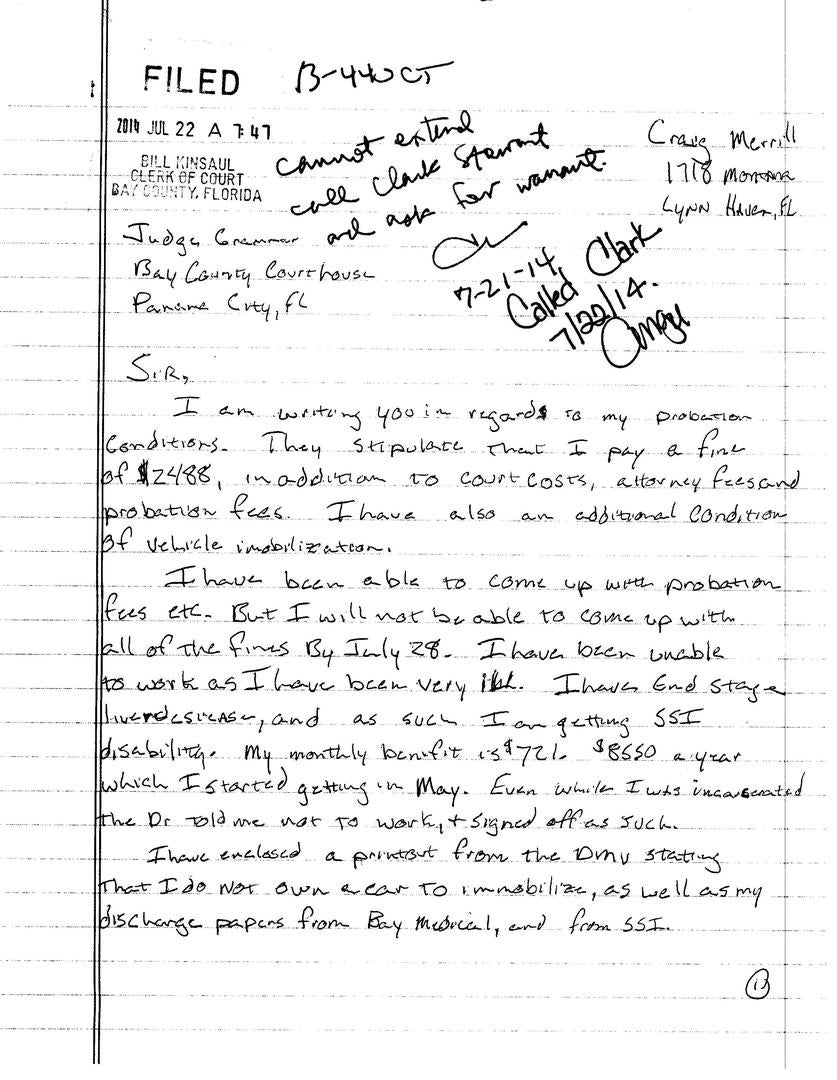 FILED 13-440CT
2014 JUL 22 A 7:47
BILL KINSAUL
CLERK OF COURT
BAY COUNTY, FLORIDA
cannot extend
call Clark Stewart
and ask for warrant.
7-21-14
Called Clark
7/22/14.
Craig Merrill
1718 Montana
Lynn Haven, FL
Judge Grammer
Bay County Courthouse
Panama City, FL
Sir,
I am writing you in regards to my probation
Conditions. They stipulate that I pay a fine
of $2488, in addition to court costs, attorney fees and
probation fees. I have also an additional condition
of vehicle imobilization.
I have been able to come up with probation
fees etc. But I will not be able to come up with
all of the fines By July 28. I have been unable
to work as I have been very ill. I have End stage
liverdesiease, and as such I am getting SSI
disability. My monthly benefit is $721. $8550 a year
which I started getting in May. Even while I was incarserated
the Dr told me not to work, + signed off as such.
I have enclosed a printout from the DMV stating
That I do not own a car to immobilize, as well as my
discharge papers from Bay Medical, and from SSI.
1